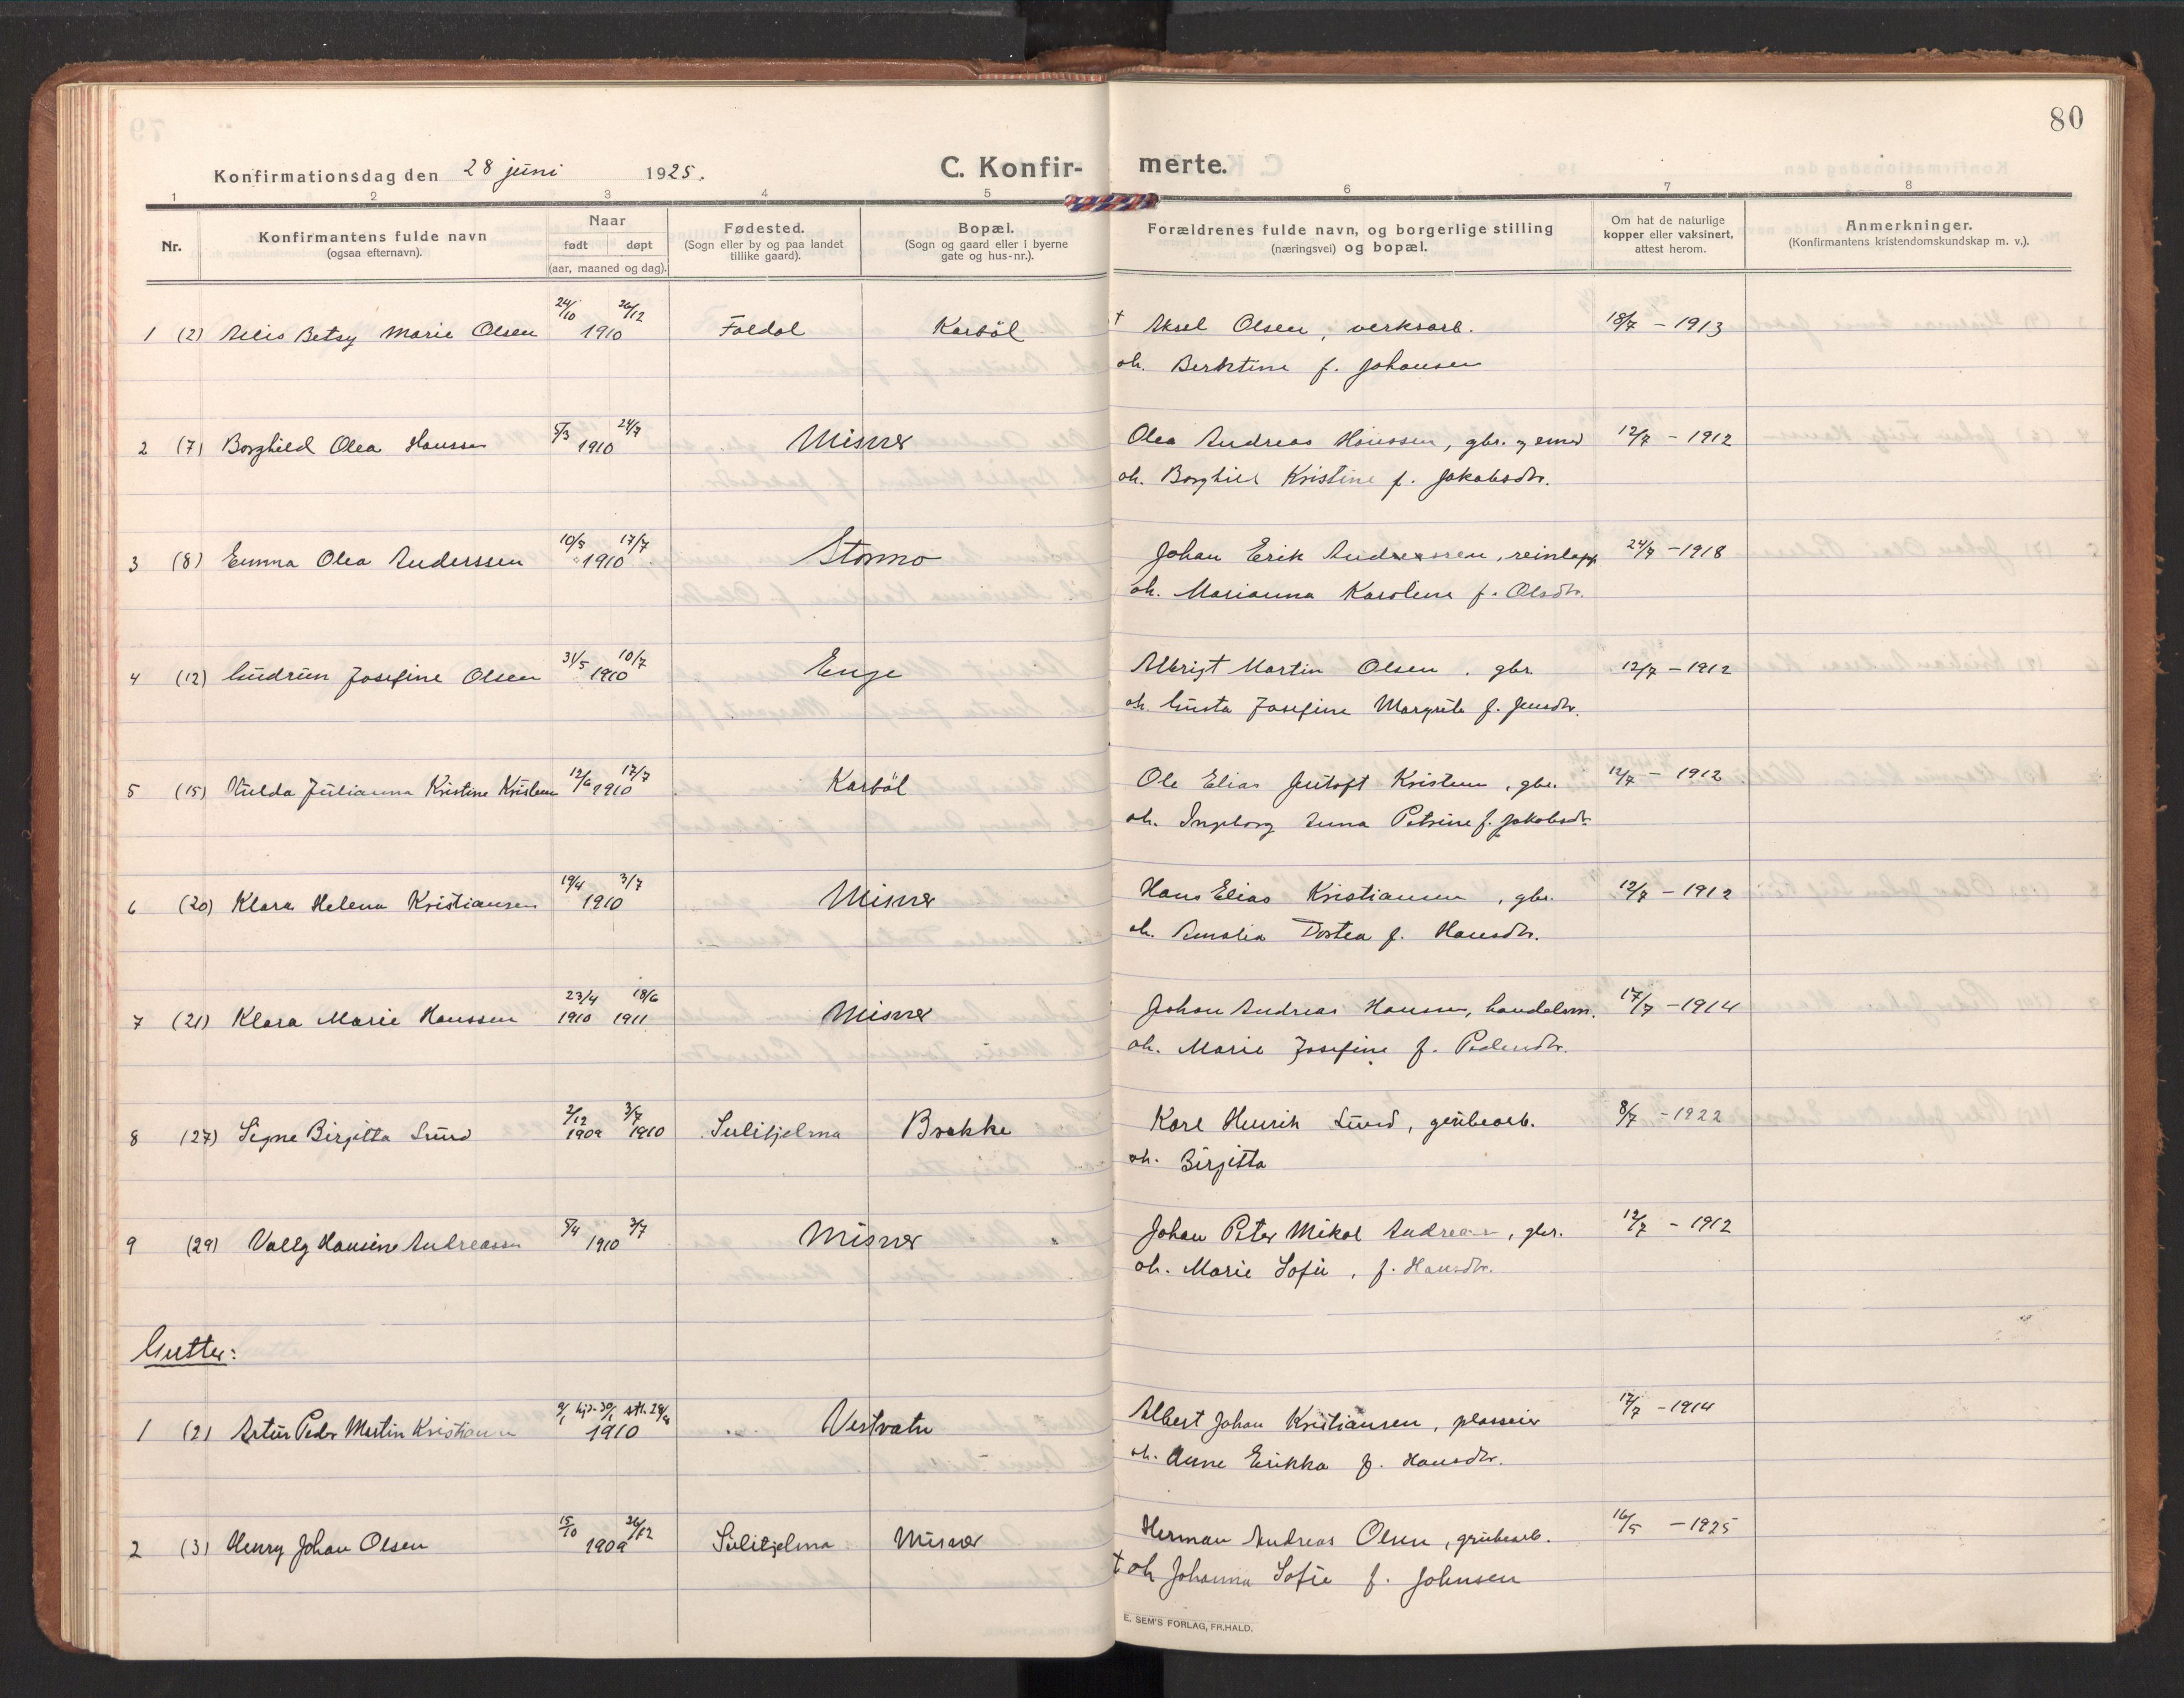 80
Konfirmationsdag den 28 juni 1925.
C. Konfir- merte.
1 2 3 4 5 6 7 8
Nr.
Konfirmantens fulde navn
(ogsaa efternavn).
Naar
født døpt
(aar, maaned og dag).
Fødested.
(Sogn eller by og paa landet
tillike gaard).
Bopæl.
(Sogn og gaard eller i byerne
gate og hus-nr.).
Forældrenes fulde navn, og borgerlige stilling
(næringsvei) og bopæl.
Om hat de naturlige
kopper eller vaksinert,
attest herom.
Anmerkninger.
(Konfirmantens kristendomskundskap m. v.).
24/10 26/12
1 (2) Betsy Marie Olsen 1910 Karbøl † Aksel Olsen, verksarb. 18/7 - 1913
oh. f. Johansen
5/3 24/7
2 (7) Borghild Olea Hanssen 1910 Misvær Olea Andreas Hanssen, gbr. 12/7 - 1912
oh. Borghild Kristine f. Jakobsdtr.
17/7
3 (8) Emma Olea Anderssen 1910 Stormo Johan Erik Anderssen, reinlapp 24/7 - 1918
oh. Marianna Karoline f. Olsdtr.
31/5 10/7
4 (12) Gudrun Josefine Olsen 1910 Enge Albrigt Martin Olsen, gbr. 12/7 - 1912
oh. Gusta Josefine Margrete f. Jensdtr.
12/6 17/7
5 (15) Hulda Julianna Kristine Kristensen 1910 Karbøl Ole Elias Jentoft Kristensen, gbr. 12/7 - 1912
oh. Ingeborg Anna Petrine f. Jakobsdtr.
19/4 3/7
6 (20) Klara Helena Kristiansen 1910 Misvær Hans Elias Kristiansen, gbr. 12/7 - 1912
oh. Amalia Dortea f. Hansdtr.
23/4 18/6
7 (21) Klara Marie Hanssen 1910 1911 Misvær Johan Andreas Hanssen, handelsm. 17/7 - 1914
oh. Marie Josefine f. Pedersdtr.
2/12 3/7
8 (27) Signe Birgitta Lund 1909 1910 Sulitjelma Brekke Karl Henrik Lund, grubearb. 8/7 - 1922
oh. Birgitta
5/4 3/7
9 (29) Vally Hansine Andreassen 1910 Misvær Johan Peter Mikal Andreassen, gbr. 12/7 - 1912
oh. Marie Sofie, f. Hansdtr.
Gutter:
9/1 hjd. 30/1 stf. 29/4
1 (2) Artur Peder Martin Kristiansen 1910 Vestvatn Albert Johan Kristiansen, plasseier 17/7 - 1914
oh. Anne Erikka f. Hansdtr.
15/10 26/12
2 (3) Henry Johan Olsen 1909 Sulitjelma Misvær Herman Andreas Olsen, grubearb. 16/5 - 1925
† oh Johanna Sofie f. Johnsen
E. SEM'S FORLAG, FR.HALD.